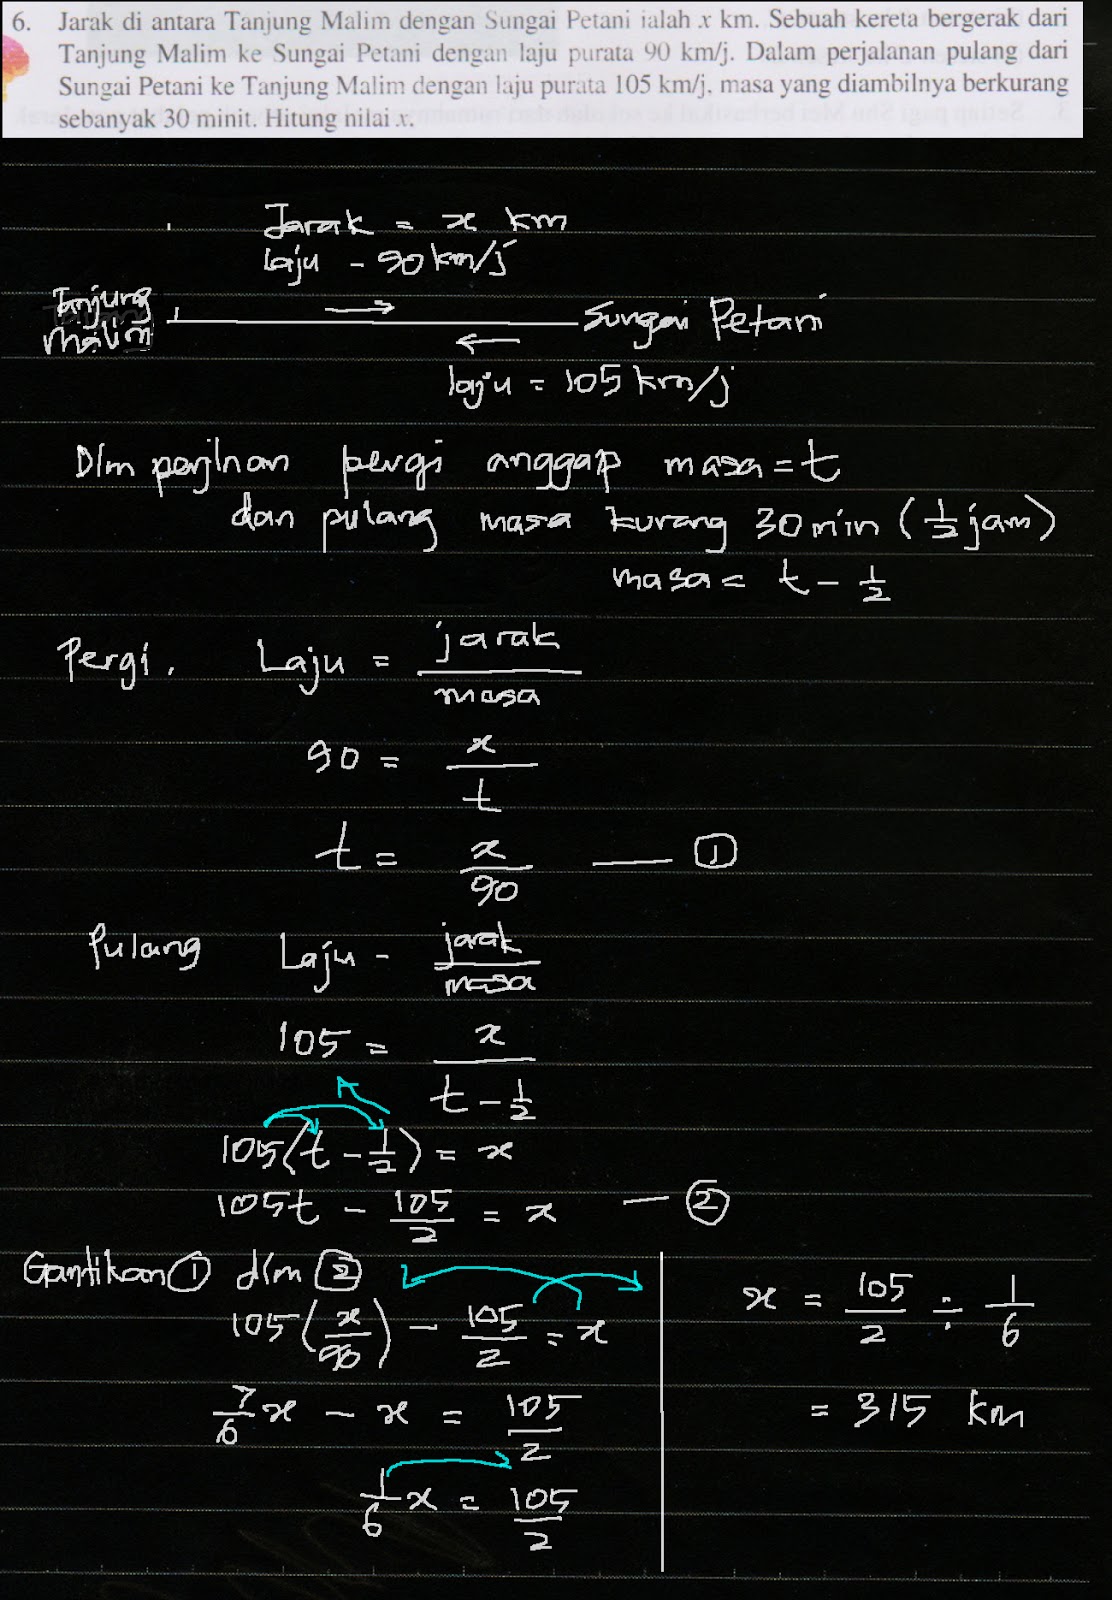 6. Jarak di antara Tanjung Malim dengan Sungai Petani ialah x km. Sebuah kereta bergerak dari
Tanjung Malim ke Sungai Petani dengan laju purata 90 km/j. Dalam perjalanan pulang dari
Sungai Petani ke Tanjung Malim dengan laju purata 105 km/j, masa yang diambilnya berkurang
sebanyak 30 minit. Hitung nilai x.
Jarak = x km
laju - 90 km/j
Tanjung
Malim
Sungai Petani
laju = 105 km/j
Dlm perjlnan pergi anggap masa = t
dan pulang masa kurang 30 min (1/2 jam)
masa = t - 1/2
Pergi. Laju = jarak/masa
90 = x/t
t = x/90 — ①
Pulang Laju - jarak/masa
105 = x/(t - 1/2)
105(t - 1/2) = x
105t - 105/2 = x — ②
Gantikan ① dlm ②
105(x/90) - 105/2 = x
7/6 x - x = 105/2
1/6 x = 105/2
x = 105/2 ÷ 1/6
= 315 km